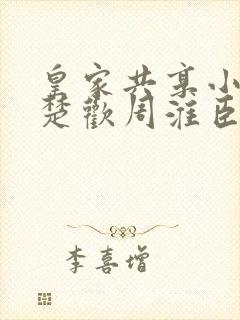 皇家共享小
楚歡周淮臣
李喜增